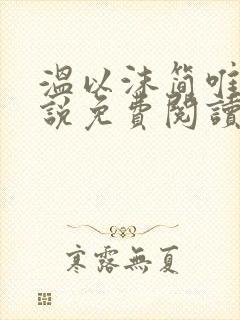 溫以沫簡唯
說免費閱讀
寒露無夏